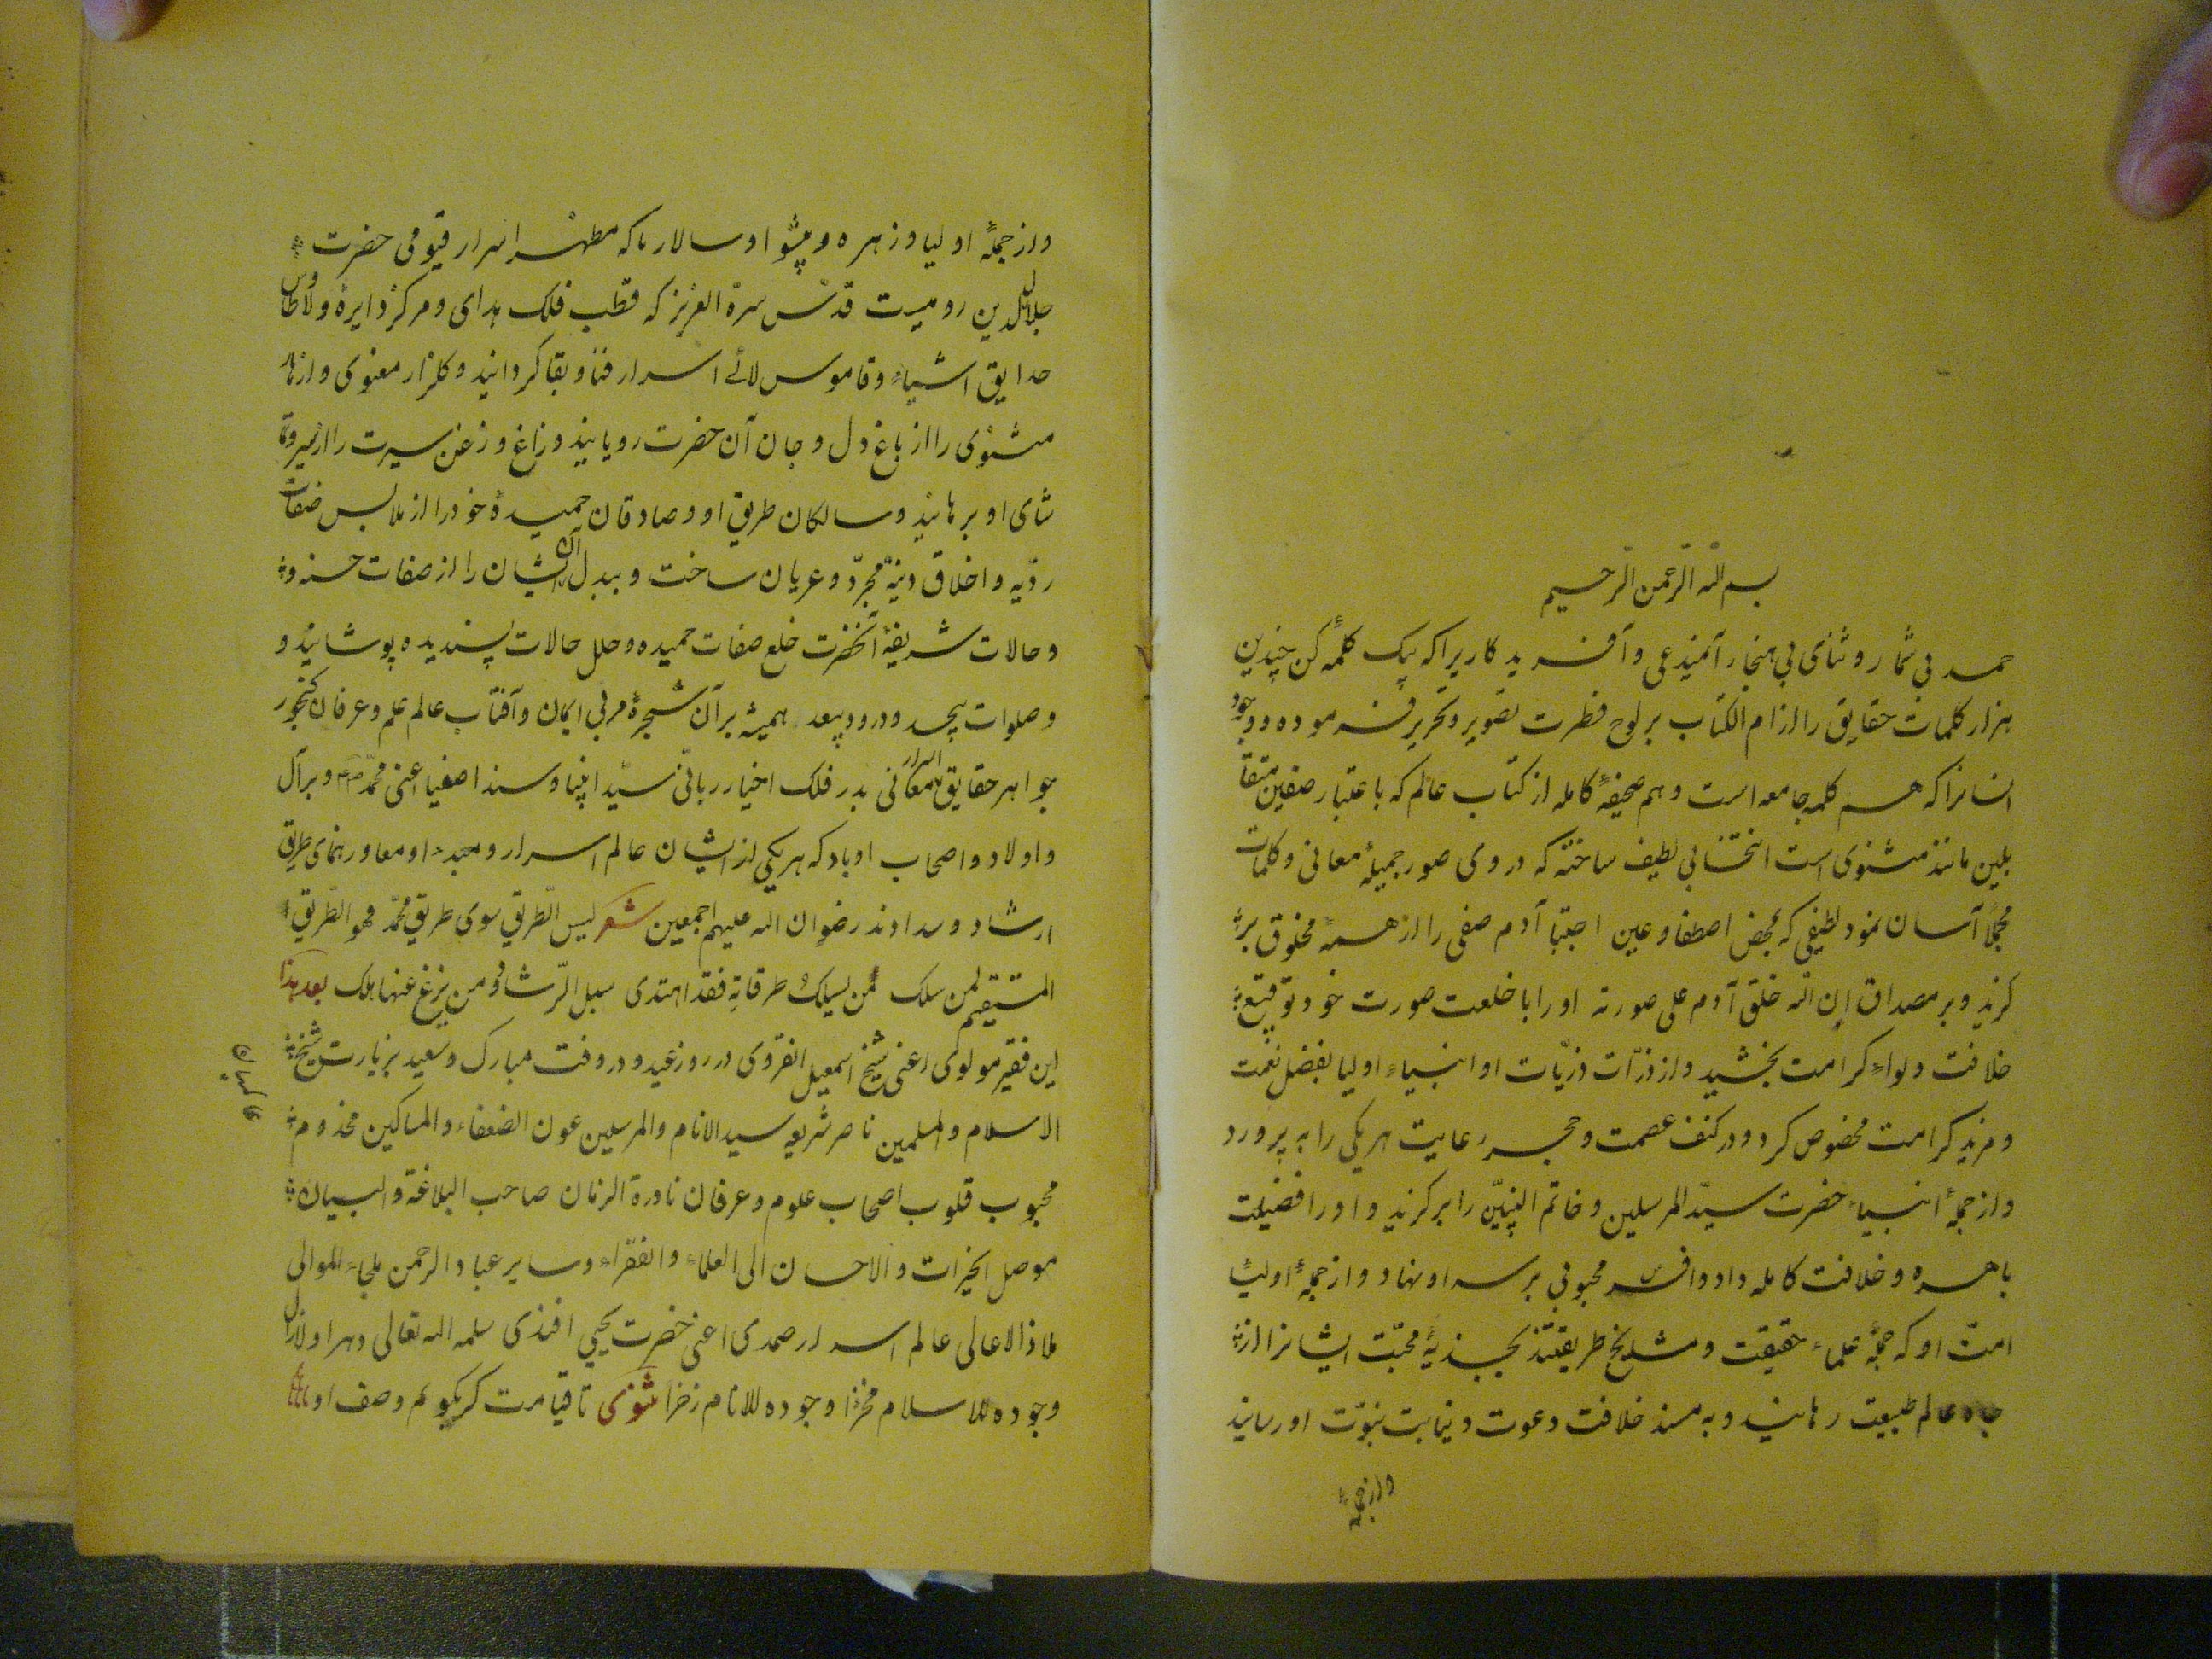 بسم الله الرّحمن الرّحیم
حمد بی شمار و ثنای بی هنجار آفریدکاریرا که بیک کلمۀ کن چندین
هزار کلمات حقایق را از ام الکتاب بر لوح فطرت تصویر و تحریر فرموده و وجود
انسانرا که هم کلمه جامعه است و هم صحیفۀ کامله از کتاب عالم که باعتبار صفین متقا
بلین مانند مثنوی است انتخابی لطیف ساخته که در وی صور جمیلۀ معانی و کلمات
مجملا آسان نمود لطیفی که بمحض اصطفا و عین اجتبا آدم صفی را از همۀ مخلوق بر
کزید و بر مصداق إن الله خلق آدم علی صورته او را با خلعت صورت خود
خلافت ولواء کرامت بخشید و از ذرّات ذریّات او انبیاء اولیا بفضل نعمت
و مزید کرامت مخصوص کرد و در کنف عصمت و حجر رعایت هر یکی را به پرورد
و از جملۀ انبیاء حضرت سیّد المرسلین و خاتم النبیّین را برکزید و او را فضیلت
باهره و خلافت کامله داد و افسر محبوبی بر سر او نهاد و از جملۀ اولیا
امت او که جملۀ علماء حقیقت و مشایخ طریقتند بجذبۀ محبّت ایشانرا از
چاه عالم طبیعت رهانید و به مسند خلافت دعوت و نیابت نبوّت او رسانید
و از جملۀ
و از جملۀ اولیا و زهره و پیشوا و سالار ما که مظهر اسرار قیومی حضرت
جلال الدین رومیست قدّس سرّه العزیز که قطب فلک هدای و مرکز دایرۀ ولا طاوس
حدایق اشیاء و قاموس لآلئ اسرار فنا و بقا کردانید و کلزار معنوی و ازهار
مثنوی را از باغ دل و جان آن حضرت رویانید و زاغ و زغن سیرت را از
او برهانید و سالکان طریق او و صادقان حمیدۀ خود را از ملابس صفات
ردّیه و اخلاق دنیّه مجرّد و عریان ساخت و ببدل آن ایشان را از صفات حسنه و
و حالات شریفۀ آنحضرت خلع صفات حمیده و حلل حالات پسندیده پوشانید و
و صلوات بیحد و درود بیعد همیشه بر آن شجرۀ مربی ایمان و آفتاب عالم علم و عرفان کنجور
جواهر حقایق اسرار معانی بدر فلک اخیار ربانی سیّد انبیا و سند اصفیا اعنی محمّد صم و بر آل
و اولاد و اصحاب او باد که هر یکی از ایشان عالم اسرار و مبدء او معاد و رهنمای طریق
ارشاد و سداوند رضوان الله علیهم اجمعین شعر لیس الطّریق سوی طریق محمّد فهو الطّریق
المستقیم لمن سلک لمن یسلک طرقاته فقد اهتدی سبل الرّشاد و من یزغ عنها هلک بعد هذا
این فقیر مولوی اعنی شیخ اسمعیل انقروی در روز عید و در وقت مبارک و سعید بزیارت شیخ
الاسلام والمسلمین ناصر شریعه سید الانام والمرسلین عون الضعفاء والمساکین مخدوم
محبوب قلوب اصحاب علوم و عرفان نادرة الزمان صاحب البلاغة والبیان
موصل الخیرات والاحسان الی العلماء والفقراء وسایر عباد الرحمن ملجاء الموالی
ملاذ الاعالی عالم اسرار صمدی اعنی حضرت یحیی افندی سلمه الله تعالی دهرا ولا زال
وجوده للاسلام فخرا وجوده للانام زخرا مثنوی تا قیامت کر بکویم وصف او